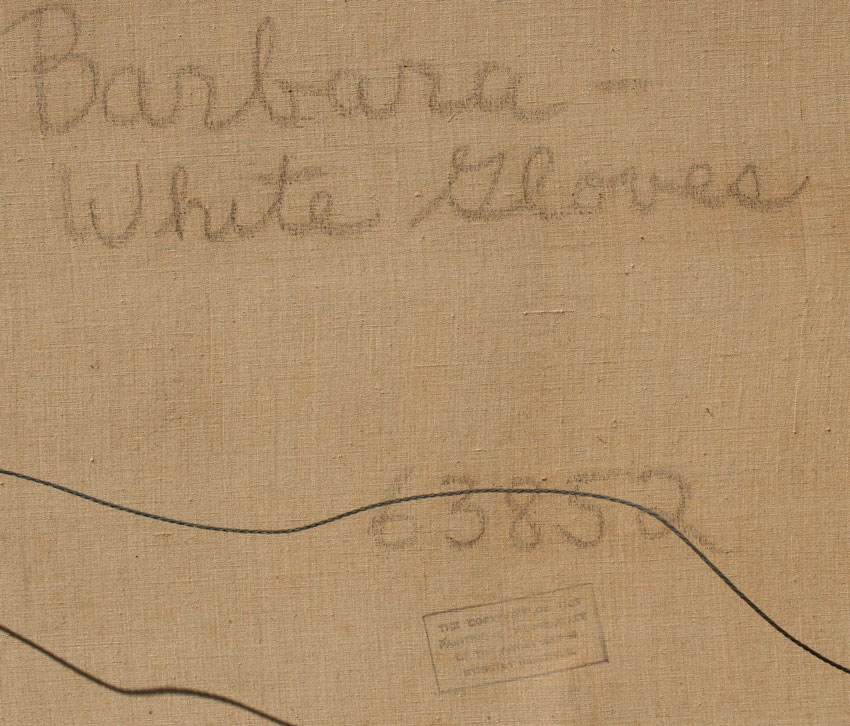 Barbara -
White Gloves
63852
THE COPYRIGHT OF THIS